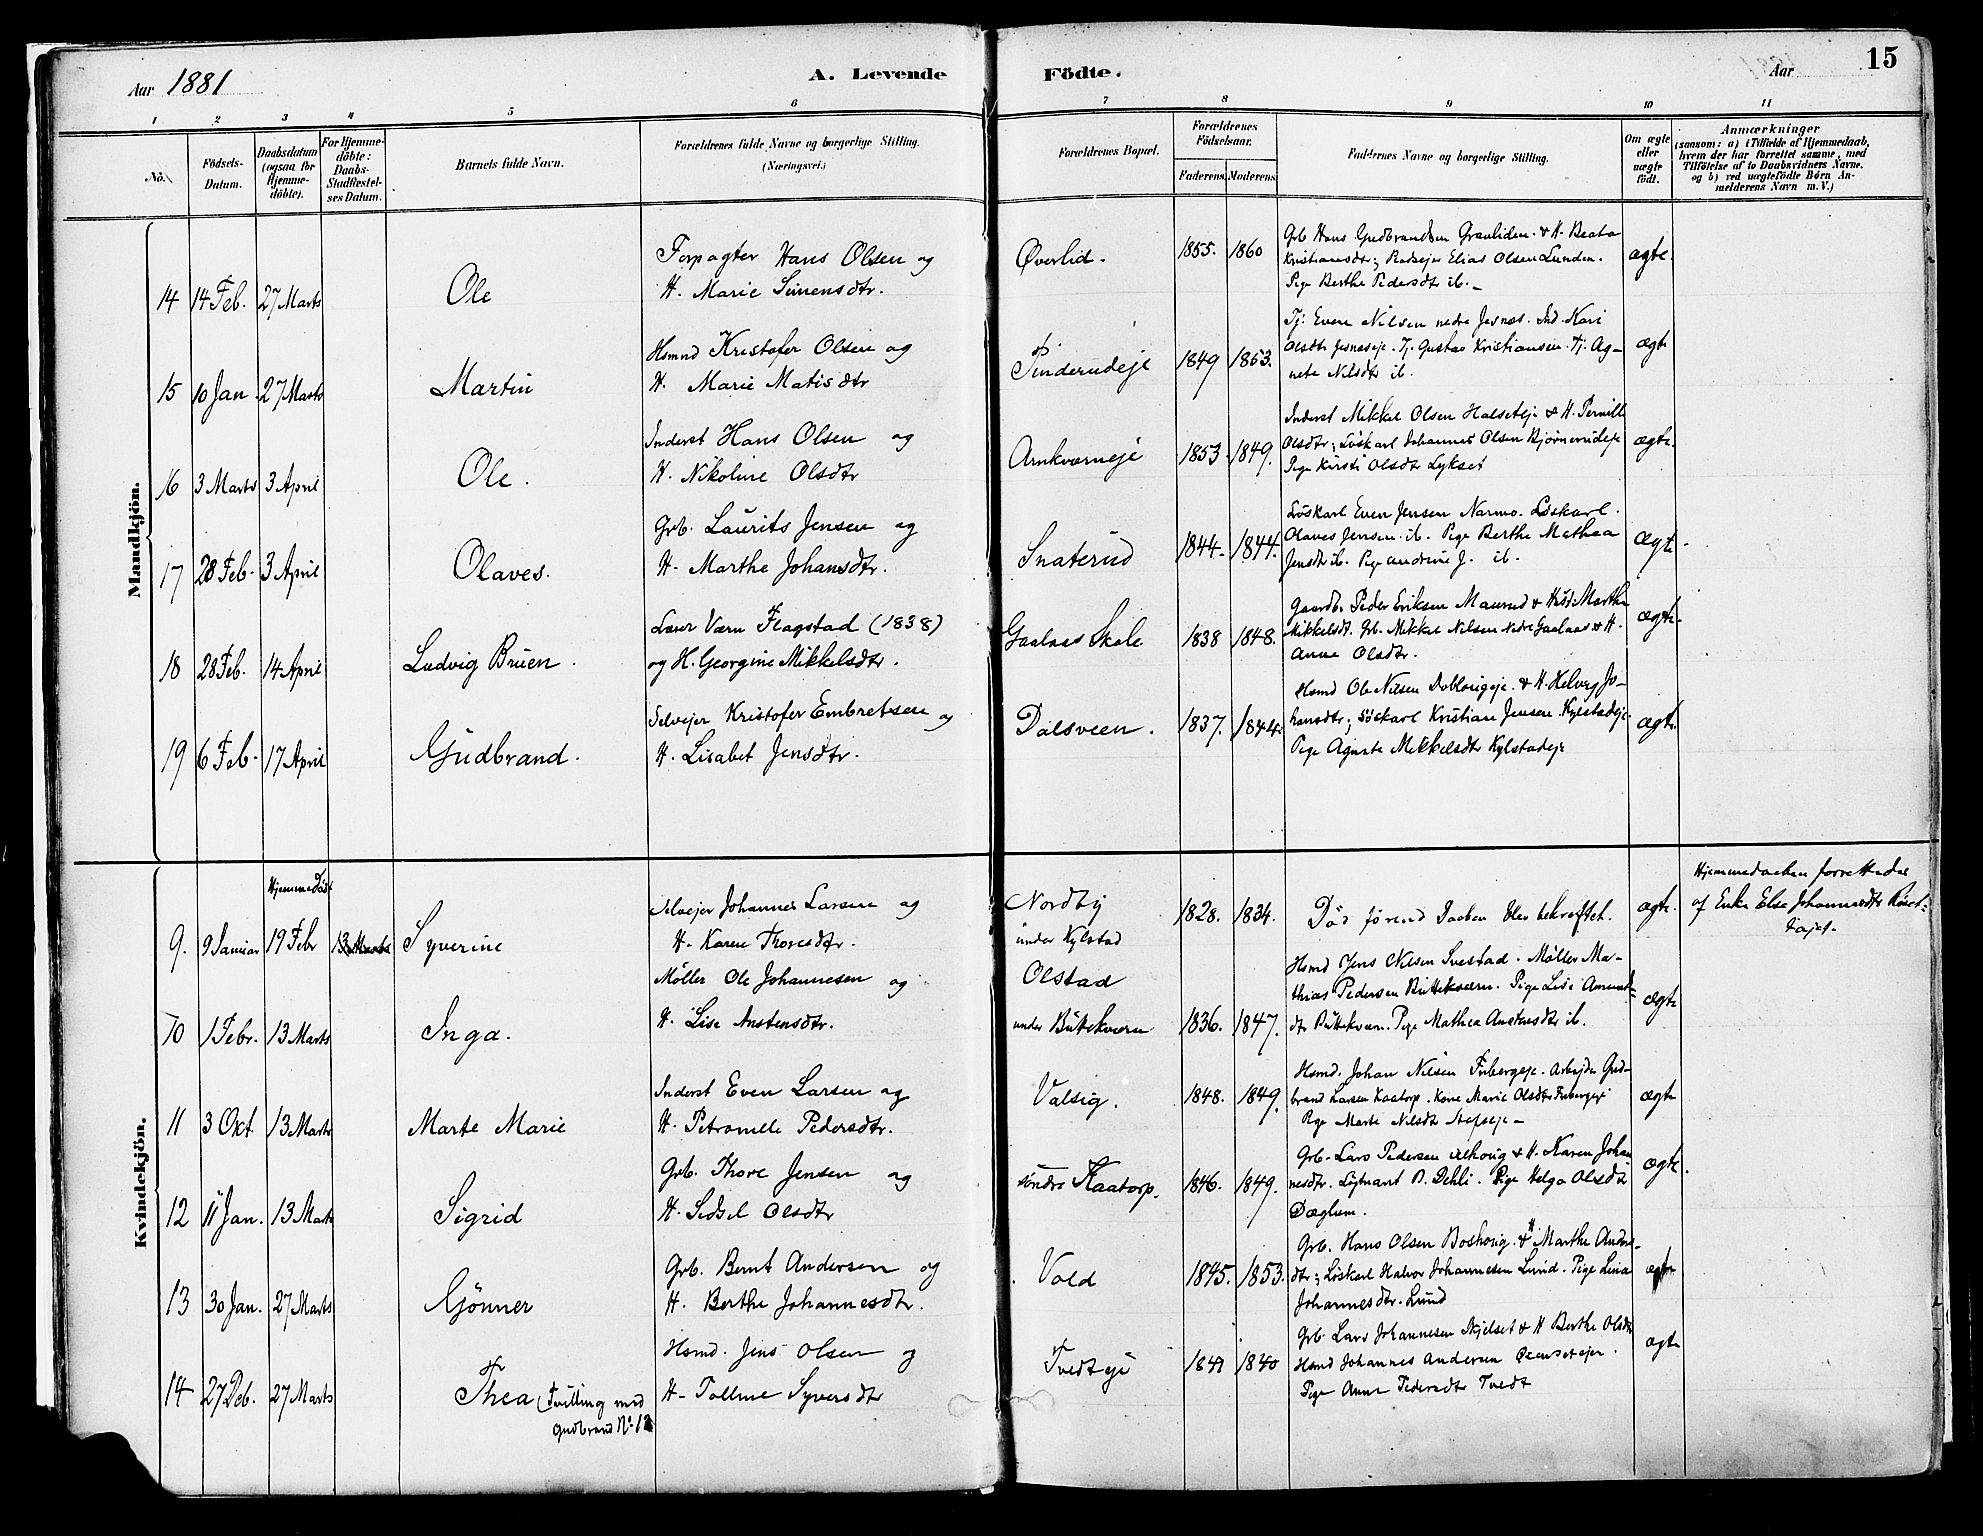 Aar 1881
A. Levende Födte.
Aar
15
1 2 3 4 5 6 7 8 9 10 11
No.
Födsels-Datum.
Daabsdatum (ogsaa for Hjemme-döbte).
For Hjemme-döbte: Daabs-Stadfæstel-ses Datum.
Barnets fulde Navn.
Forældrenes fulde Navne og borgerlige Stilling. (Næringsvei.)
Forældrenes Bopæl.
Forældrenes Födselsaar. Faderens. Moderens.
Faddernes Navne og borgerlige Stilling.
Om ægte eller uægte födt.
Anmærkninger (saasom: a) i Tilfælde af Hjemmedaab, hvem der har forrettet samme, med Tilföielse af to Daabsvidners Navne, og b) ved uægtefödte Börn An-melderens Navn m. V.)
Mandkjön.
14 14 Feb. 27 Marts Ole
Forpagter Hans Olsen og
H. Marie Simensdtr.
Øverlid. 1855. 1860
Grb Hans Gudbrandsen Granliden & H. Beata
Kristiansdtr; Elias Olsen Lunden.
Pige Berthe Pedersdtr ib.
ægte.
15 10 Jan. 27 Marts Martin
Hsmnd Kristofer Olsen og
H. Marie Matisdtr
Tinderudeje 1849 1853.
Tj. Even Nilsen nedre Jesnæs. Ind. Kari
Olsdtr Jesnæseje. Tj. Gustav Kristiansen. Tj. Ag-
nete Nilsdtr ib.
ægte
16 3 Marts 3 April Ole.
Inderst Hans Olsen og
H. Nikoline Olsdtr
Arnkværneje 1853 1849.
Inderst Mikkel Olsen Halseteje & H. Pernille
Olsdtr; Löskarl Johannes Olsen Bjørnerudeje
Pige Kirsti Olsdtr Lykset
ægte.
17 28 Feb. 3 April Olaves.
Grb. Laurits Jensen og
H. Marthe Johansdtr.
Snaterud 1844. 1844.
Löskarl Even Jensen Narmo. Löskarl.
Olaves Jensen ib. Pige Berthe Mathea
Jensdtr ib. Pige Andrine J. ib.
ægte.
18 28 Feb. 14 April Ludvig Bruen.
Lærer Værn Flagstad (1838)
og H. Georgine Mikkelsdtr.
Gaalaas Skole 1838 1848.
Gaardb. Peder Eriksen Maurud & Hust. Marthe
Mikkelsdt. Grb. Mikkel Nilsen Nedre Gaalaas & H.
Anne Olsdtr.
ægte.
19 6 Feb. 17 April Gudbrand.
Selvejer Kristofer Embretsen og
H. Lisabet Jensdtr.
Dalsveen. 1837. 1844.
Hsmd Ole Nilsen Doblougeje. & H. Helveg Jo-
hansdtr; Löskarl Kristian Jensen Kylstadeje
Pige Agnete Mikkelsdtr Kylstadeje
ægte.
Kvindekjön.
Hjemmedöbt
9. 9 Januar 19 Febr 13 Marts Syverine
Selvejer Johannes Larsen og
H. Karen Thoresdtr.
Nordby
under Kylstad
1828. 1834.
Död førend Daaben blev bekreftet.
ægte.
Hjemmedaaben forrettedes
af Enke Else Johannesdtr
10 1 Febr. 13 Marts Inga.
Møller Ole Johannesen og
H. Lise Anstensdtr.
Olstad
under Büttekværn
1836. 1847.
Hsmd Jens Nilsen Svestad. Møller Ma-
thias Pedersen Büttekværn. Pige Lise Amund-
dtr Büttekværn. Pige Mathea Anstensdtr ib.
ægte
11 3 Okt 13 Marts Marte Marie
Inderst Even Larsen og
H. Petronelle Pedersdtr.
Valsig. 1848. 1849.
Hsmd. Johan Nilsen Furbergeje. Arbejder Gud-
brand Larsen Kaatorp. Kone Marie Olsdtr Furbergeje
Pige Marte Nilsdtr
ægte
12 11 Jan. 13 Marts Sigrid
Grb. Thore Jensen og
H. Sidsel Olsdtr
söndre Kaatorp. 1846. 1849.
Grb. Lars Pedersen & H. Karen Johan
nesdtr. Lijtnant O. Dehli. Pige Helga Olsdtr
Dæglum.
ægte.
13 30 Jan. 27 Marts Gönner
Grb. Bernt Andersen og
H. Berthe Johannesdtr.
Vold 1845. 1853.
Grb. Hans Olsen Boskoug. & H Marthe Anders-
dtr; Löskarl Halvor Johannesen Lund. Pige Lina
Johannesdtr. Lund
ægte
14 27 Deb. 27 Marts Thea (Tvilling med
Gudbrand No 12
Hsmd. Jens Olsen og
H. Polline Syversdtr
Tvedteje 1841 1840
Grb. Lars Johannesen Mjelset & H Berthe Olsdtr
Hsmd Johannes Andersen
Pige Anne Pedersdtr Tvedt
ægte